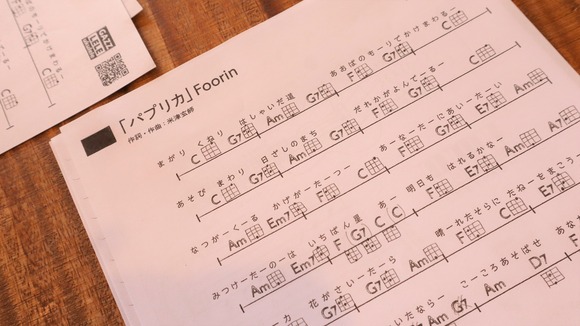 「パプリカ」Foorin
作詞・作曲：米津玄師
まがり くねり はしゃいだ道 あおばのもーりでかけまわるー
C G7 Am G7 F G7 C
あそび まわり 日ざしのまち だれかがよんでーるー
C G7 Am G7 F G7 C
なつがーくーる かげがーたーつー あーなーたーにあいーたーい
Am Em7 F C F G7 E7 Am
みつけーたーのーは いちばん星 あー明日も はれるかなー
Am Em7 F (G7) C (C) F G7 E7 Am A7
花がさいーたーら 晴ーれたそらに たねーをまこう
G7 G7 Am F C E7
こーころあそばせ あなた
Am D7 F
いたならー
Am G7